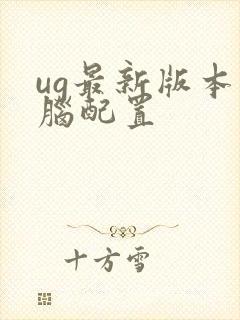 ug最新版本
腦配置
十方雪